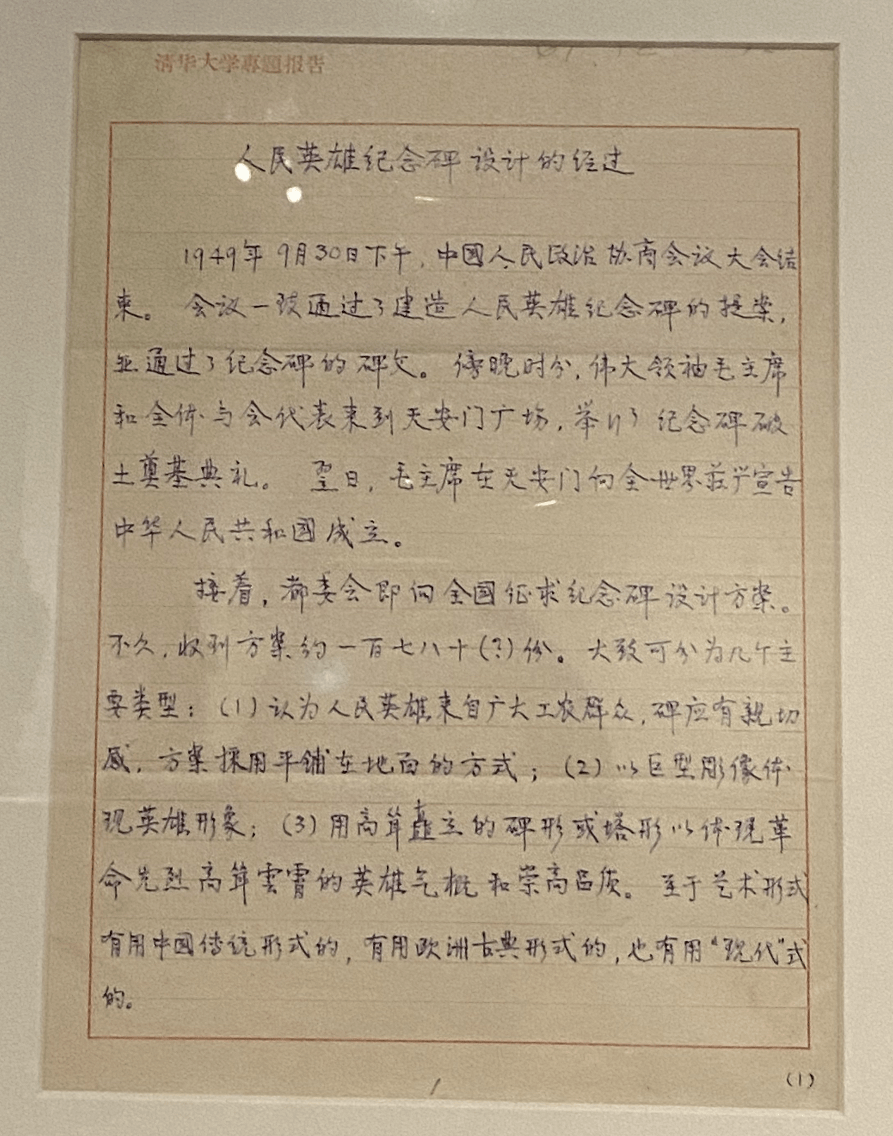 清华大学專題报告
人民英雄纪念碑设计的经过
1949年9月30日下午，中國人民政治协商会议大会结
束。会议一致通过了建造人民英雄纪念碑的提案，
並通过了纪念碑的碑文。傍晚时分，伟大领袖毛主席
和全体与会代表来到天安门广场，举行了纪念碑破
土奠基典礼。翌日，毛主席在天安门向全世界莊严宣告
中华人民共和國成立。
接着，都委会即向全国征求纪念碑设计方案。
不久，收到方案约一百七八十(?)份。大致可分为几个主
要类型：(1)认为人民英雄来自广大工农群众，碑应有親切
感，方案採用平鋪在地面的方式；(2)以巨型彫像体
现英雄形象；(3)用高耸矗立的碑形或塔形以体现革
命先烈高耸雲霄的英雄气概和崇高品质。至于艺术形式
有用中國传统形式的，有用欧洲古典形式的，也有用“现代”式
的。
1
(1)